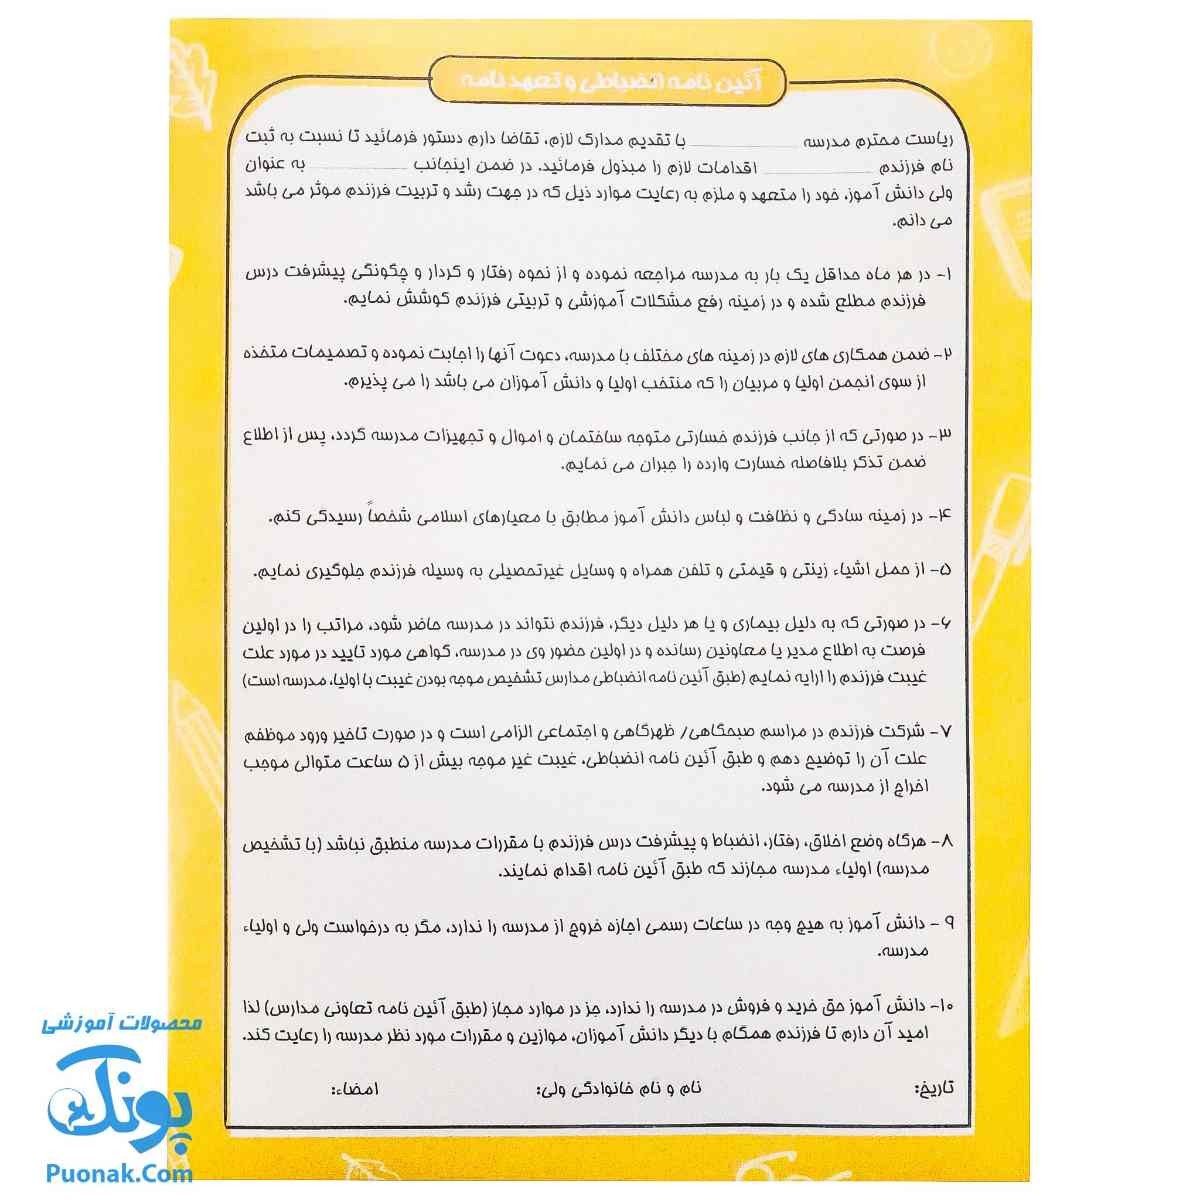 آئین نامه انضباطی و تعهد نامه
ریاست محترم مدرسه ............ با تقدیم مدارک لازم، تقاضا دارم دستور فرمائید تا نسبت به ثبت
نام فرزندم ............ اقدامات لازم را مبذول فرمائید. در ضمن اینجانب ............ به عنوان
ولی دانش آموز، خود را متعهد و ملزم به رعایت موارد ذیل که در جهت رشد و تربیت فرزندم موثر می باشد
می دانم.
۱- در هر ماه حداقل یک بار به مدرسه مراجعه نموده و از نحوه رفتار و کردار و چگونگی پیشرفت درس
فرزندم مطلع شده و در زمینه رفع مشکلات آموزشی و تربیتی فرزندم کوشش نمایم.
۲- ضمن همکاری های لازم در زمینه های مختلف با مدرسه، دعوت آنها را اجابت نموده و تصمیمات متخذه
از سوی انجمن اولیا و مربیان را که منتخب اولیا و دانش آموزان می باشد را می پذیرم.
۳- در صورتی که از جانب فرزندم خسارتی متوجه ساختمان و اموال و تجهیزات مدرسه گردد، پس از اطلاع
ضمن تذکر بلافاصله خسارت وارده را جبران می نمایم.
۴- در زمینه سادگی و نظافت و لباس دانش آموز مطابق با معیارهای اسلامی شخصاً رسیدگی کنم.
۵- از حمل اشیاء زینتی و قیمتی و تلفن همراه و وسایل غیرتحصیلی به وسیله فرزندم جلوگیری نمایم.
۶- در صورتی که به دلیل بیماری و یا هر دلیل دیگر، فرزندم نتواند در مدرسه حاضر شود، مراتب را در اولین
فرصت به اطلاع مدیر یا معاونین رسانده و در اولین حضور وی در مدرسه، گواهی مورد تایید در مورد علت
غیبت فرزندم را ارایه نمایم (طبق آئین نامه انضباطی مدارس تشخیص موجه بودن غیبت با اولیا، مدرسه است)
۷- شرکت فرزندم در مراسم صبحگاهی/ ظهرگاهی و اجتماعی الزامی است و در صورت تاخیر ورود موظفم
علت آن را توضیح دهم و طبق آئین نامه انضباطی، غیبت غیر موجه بیش از ۵ ساعت متوالی موجب
اخراج از مدرسه می شود.
۸- هرگاه وضع اخلاق، رفتار، انضباط و پیشرفت درس فرزندم با مقررات مدرسه منطبق نباشد (با تشخیص
مدرسه) اولیاء مدرسه مجازند که طبق آئین نامه اقدام نمایند.
۹- دانش آموز به هیچ وجه در ساعات رسمی اجازه خروج از مدرسه را ندارد، مگر به درخواست ولی و اولیاء
مدرسه.
۱۰- دانش آموز حق خرید و فروش در مدرسه را ندارد، جز در موارد مجاز (طبق آئین نامه تعاونی مدارس) لذا
امید آن دارم تا فرزندم همگام با دیگر دانش آموزان، موازین و مقررات مورد نظر مدرسه را رعایت کند.
تاریخ: نام و نام خانوادگی ولی: امضاء:
محصولات آموزشی
پونک
Puonak.Com